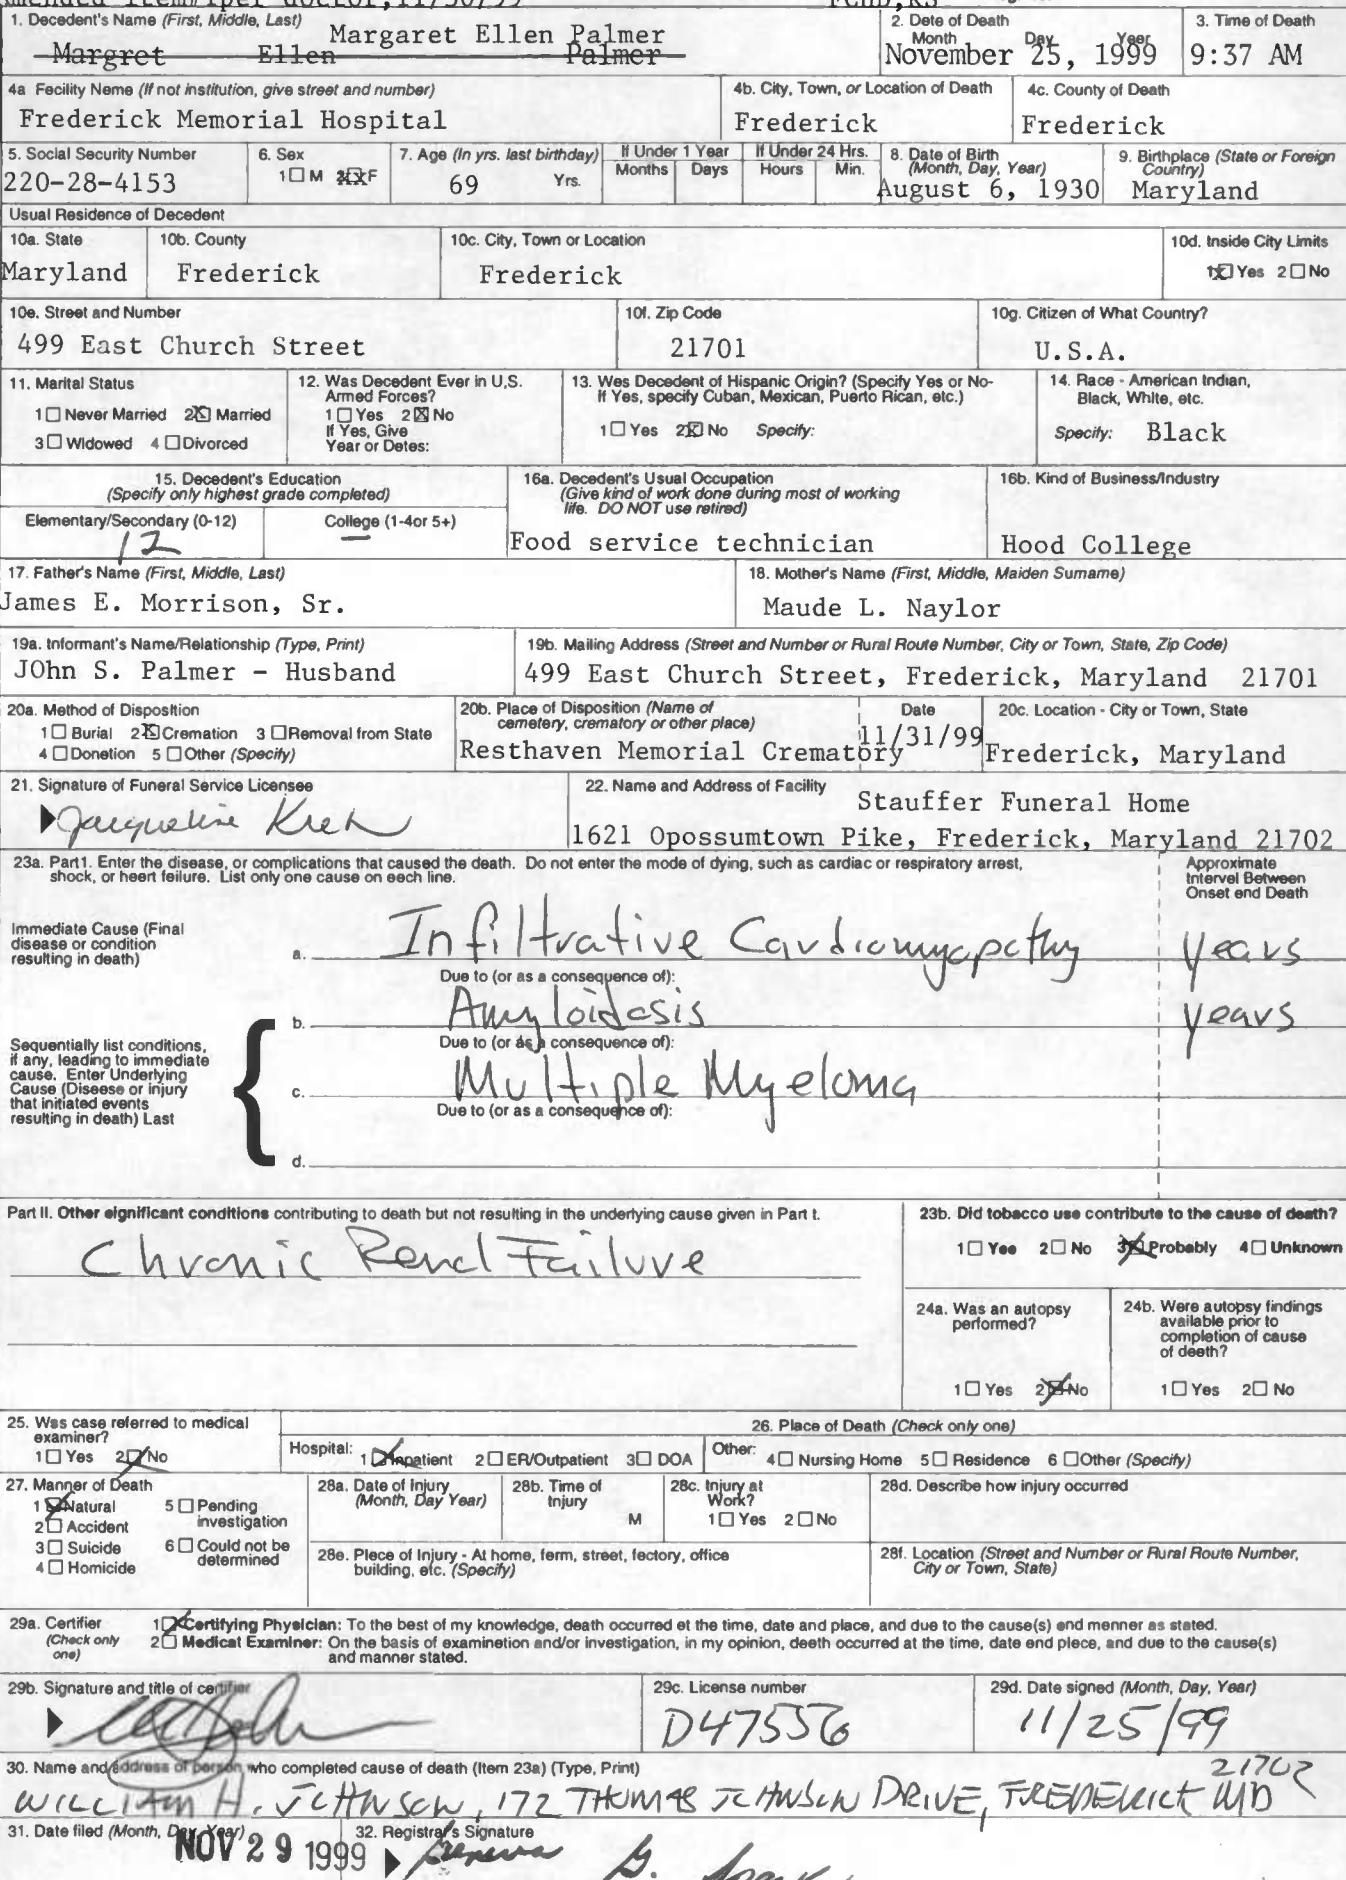 1. Decedent's Name (First, Middle, Last)
Margaret Ellen Palmer
Margret Ellen Palmer
2. Dete of Death
Month Day Year
November 25, 1999
3. Time of Death
9:37 AM
4a Fecility Neme (If not institution, give street and number)
Frederick Memorial Hospital
4b. City, Town, or Location of Death
Frederick
4c. County of Death
Frederick
5. Social Security Number
220-28-4153
6. Sex
1☐ M 2☒F
7. Age (In yrs. last birthday)
69 Yrs.
If Under 1 Year
Months Days
If Under 24 Hrs.
Hours Min.
8. Date of Birth
(Month, Day, Year)
August 6, 1930
9. Birthplace (State or Foreign
Country)
Maryland
Usual Residence of Decedent
10a. State
Maryland
10b. County
Frederick
10c. City, Town or Location
Frederick
10d. Inside City Limits
1☒ Yes 2☐ No
10e. Street and Number
499 East Church Street
10f. Zip Code
21701
10g. Citizen of What Country?
U.S.A.
11. Marital Status
1☐ Never Married 2☒ Married
3☐ Widowed 4☐ Divorced
12. Was Decedent Ever in U.S.
Armed Forces?
1☐ Yes 2☒ No
If Yes, Give
Year or Detes:
13. Wes Decedent of Hispanic Origin? (Specify Yes or No-
If Yes, specify Cuban, Mexican, Puerto Rican, etc.)
1☐ Yes 2☒ No Specify:
14. Race - American Indian,
Black, White, etc.
Specify: Black
15. Decedent's Education
(Specify only highest grade completed)
Elementary/Secondary (0-12)
12
College (1-4or 5+)
—
16a. Decedent's Usual Occupation
(Give kind of work done during most of working
life. DO NOT use retired)
Food service technician
16b. Kind of Business/Industry
Hood College
17. Father's Name (First, Middle, Last)
James E. Morrison, Sr.
18. Mother's Name (First, Middle, Maiden Surname)
Maude L. Naylor
19a. Informant's Name/Relationship (Type, Print)
JOhn S. Palmer - Husband
19b. Mailing Address (Street and Number or Rural Route Number, City or Town, State, Zip Code)
499 East Church Street, Frederick, Maryland 21701
20a. Method of Disposition
1☐ Burial 2☒ Cremation 3☐ Removal from State
4☐ Donetion 5☐ Other (Specify)
20b. Place of Disposition (Name of
cemetery, crematory or other place)
Resthaven Memorial Crematory
Date
11/31/99
20c. Location - City or Town, State
Frederick, Maryland
21. Signature of Funeral Service Licensee
Jacqueline Kreh
22. Name and Address of Facility
Stauffer Funeral Home
1621 Opossumtown Pike, Frederick, Maryland 21702
23a. Part1. Enter the disease, or complications that caused the death. Do not enter the mode of dying, such as cardiac or respiratory arrest,
shock, or heert feilure. List only one cause on eech line.
Approximate
Intervel Between
Onset end Death
Immediate Cause (Final
disease or condition
resulting in death)
a. Infiltrative Cardiomyopathy years
Due to (or as a consequence of):
b. Amyloidosis years
Due to (or as a consequence of):
Sequentially list conditions,
if any, leading to immediate
cause. Enter Underlying
Cause (Diseese or injury
that initiated events
resulting in death) Last
c. Multiple Myeloma
Due to (or as a consequence of):
d.
Part II. Other significant conditions contributing to death but not resulting in the underlying cause given in Part I.
Chronic Renal Failure
23b. Did tobacco use contribute to the cause of death?
1☐ Yes 2☐ No 3☒ Probably 4☐ Unknown
24a. Was an autopsy
performed?
1☐ Yes 2☒ No
24b. Were autopsy findings
available prior to
completion of cause
of deeth?
1☐ Yes 2☐ No
25. Wes case referred to medical
examiner?
1☐ Yes 2☒ No
26. Place of Death (Check only one)
Hospital: 1☒ Inpatient 2☐ ER/Outpatient 3☐ DOA
Other: 4☐ Nursing Home 5☐ Residence 6☐ Other (Specify)
27. Manner of Death
1☒ Natural 5☐ Pending
investigation
2☐ Accident
3☐ Suicide 6☐ Could not be
determined
4☐ Homicide
28a. Date of Injury
(Month, Day Year)
28b. Time of
Injury
M
28c. Injury at
Work?
1☐ Yes 2☐ No
28d. Describe how injury occurred
28e. Plece of Injury - At home, ferm, street, fectory, office
building, etc. (Specify)
28f. Location (Street and Number or Rural Route Number,
City or Town, State)
29a. Certifier
(Check only
one)
1☒ Certifying Physician: To the best of my knowledge, death occurred et the time, date and place, and due to the cause(s) end menner as stated.
2☐ Medical Examiner: On the basis of examinetion and/or investigation, in my opinion, deeth occurred at the time, date end plece, and due to the cause(s)
and manner stated.
29b. Signature and title of certifier
29c. License number
D47556
29d. Date signed (Month, Day, Year)
11/25/99
30. Name and address of person who completed cause of death (Item 23a) (Type, Print)
21702
WILLIAM H. JOHNSON, 172 THOMAS JOHNSON DRIVE, FREDERICK MD
31. Date filed (Month, Day, Year)
NOV 29 1999
32. Registrar's Signature
Geneva G.